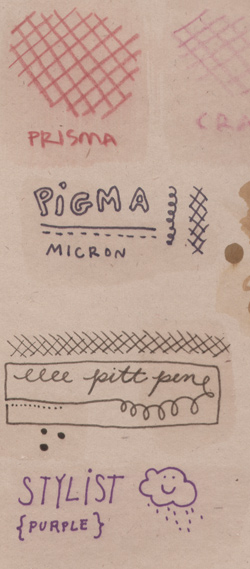 PRISMA
CRA
PIGMA
MICRON
eeee pitt pen
STYLIST
{PURPLE}